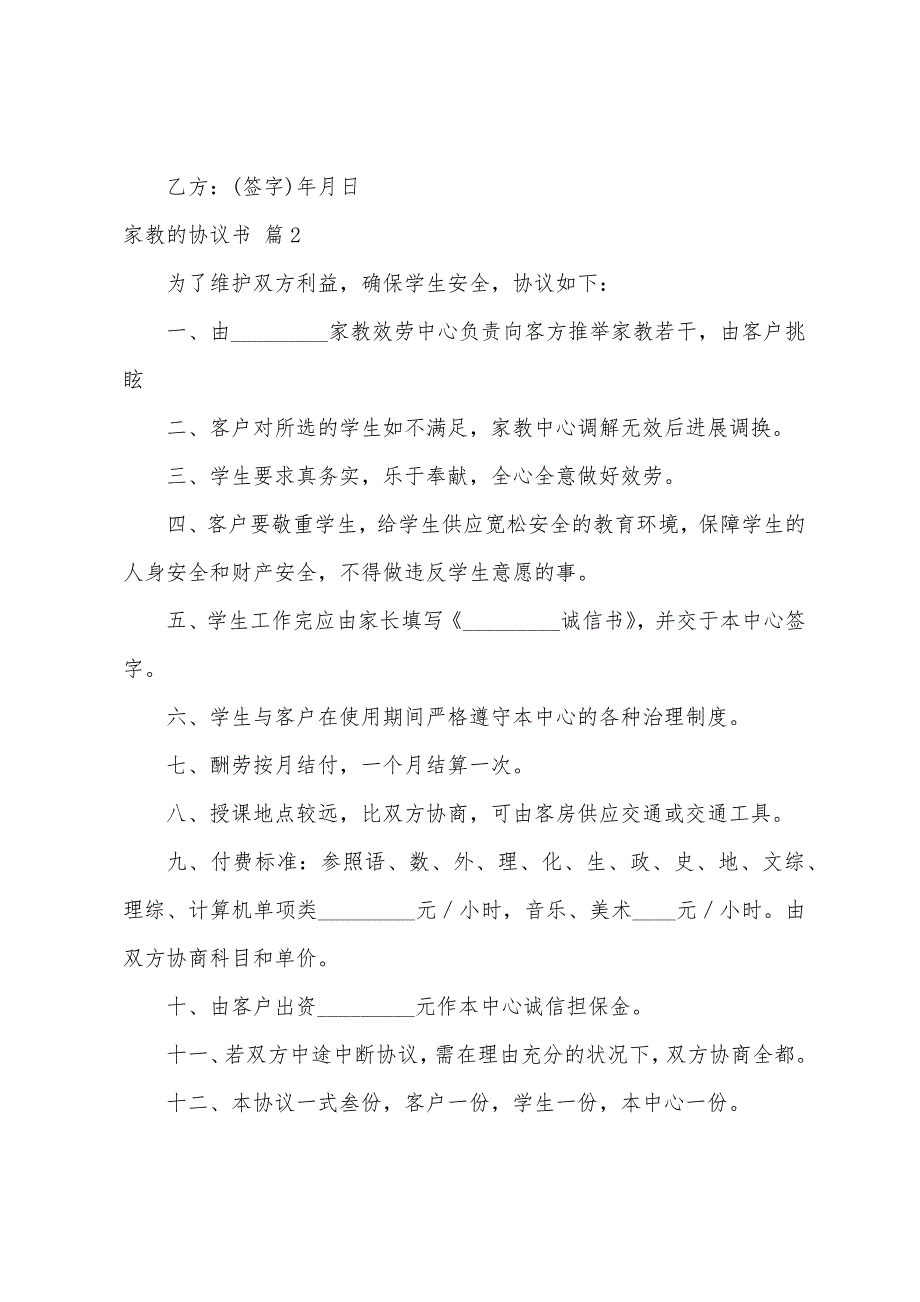 乙方：(签字)年月日
家教的协议书 篇2
为了维护双方利益，确保学生安全，协议如下：
一、由_________家教效劳中心负责向客方推举家教若干，由客户挑
眩
二、客户对所选的学生如不满足，家教中心调解无效后进展调换。
三、学生要求真务实，乐于奉献，全心全意做好效劳。
四、客户要敬重学生，给学生供应宽松安全的教育环境，保障学生的
人身安全和财产安全，不得做违反学生意愿的事。
五、学生工作完应由家长填写《_________诚信书》，并交于本中心签
字。
六、学生与客户在使用期间严格遵守本中心的各种治理制度。
七、酬劳按月结付，一个月结算一次。
八、授课地点较远，比双方协商，可由客房供应交通或交通工具。
九、付费标准：参照语、数、外、理、化、生、政、史、地、文综、
理综、计算机单项类_________元／小时，音乐、美术____元／小时。由
双方协商科目和单价。
十、由客户出资_________元作本中心诚信担保金。
十一、若双方中途中断协议，需在理由充分的状况下，双方协商全都。
十二、本协议一式叁份，客户一份，学生一份，本中心一份。